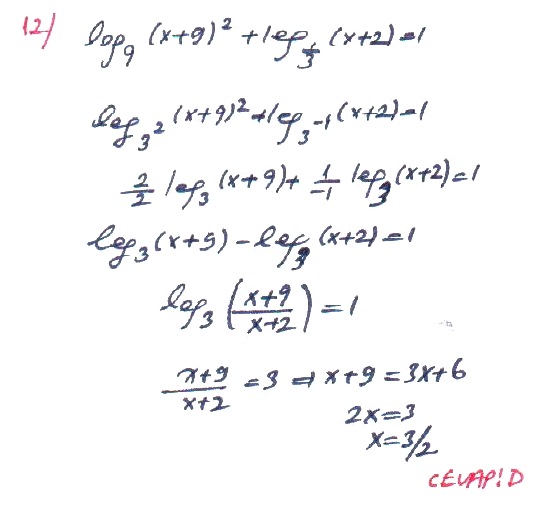 12/ log₉ (x+9)² + log_{1/3} (x+2) = 1
log_{3²} (x+9)² + log_{3⁻¹} (x+2) = 1
2/2 log₃ (x+9) + 1/-1 log₃ (x+2) = 1
log₃ (x+9) - log₃ (x+2) = 1
log₃ ((x+9)/(x+2)) = 1
(x+9)/(x+2) = 3 ⇒ x+9 = 3x+6
2x=3
x=3/2
CEVAP!D